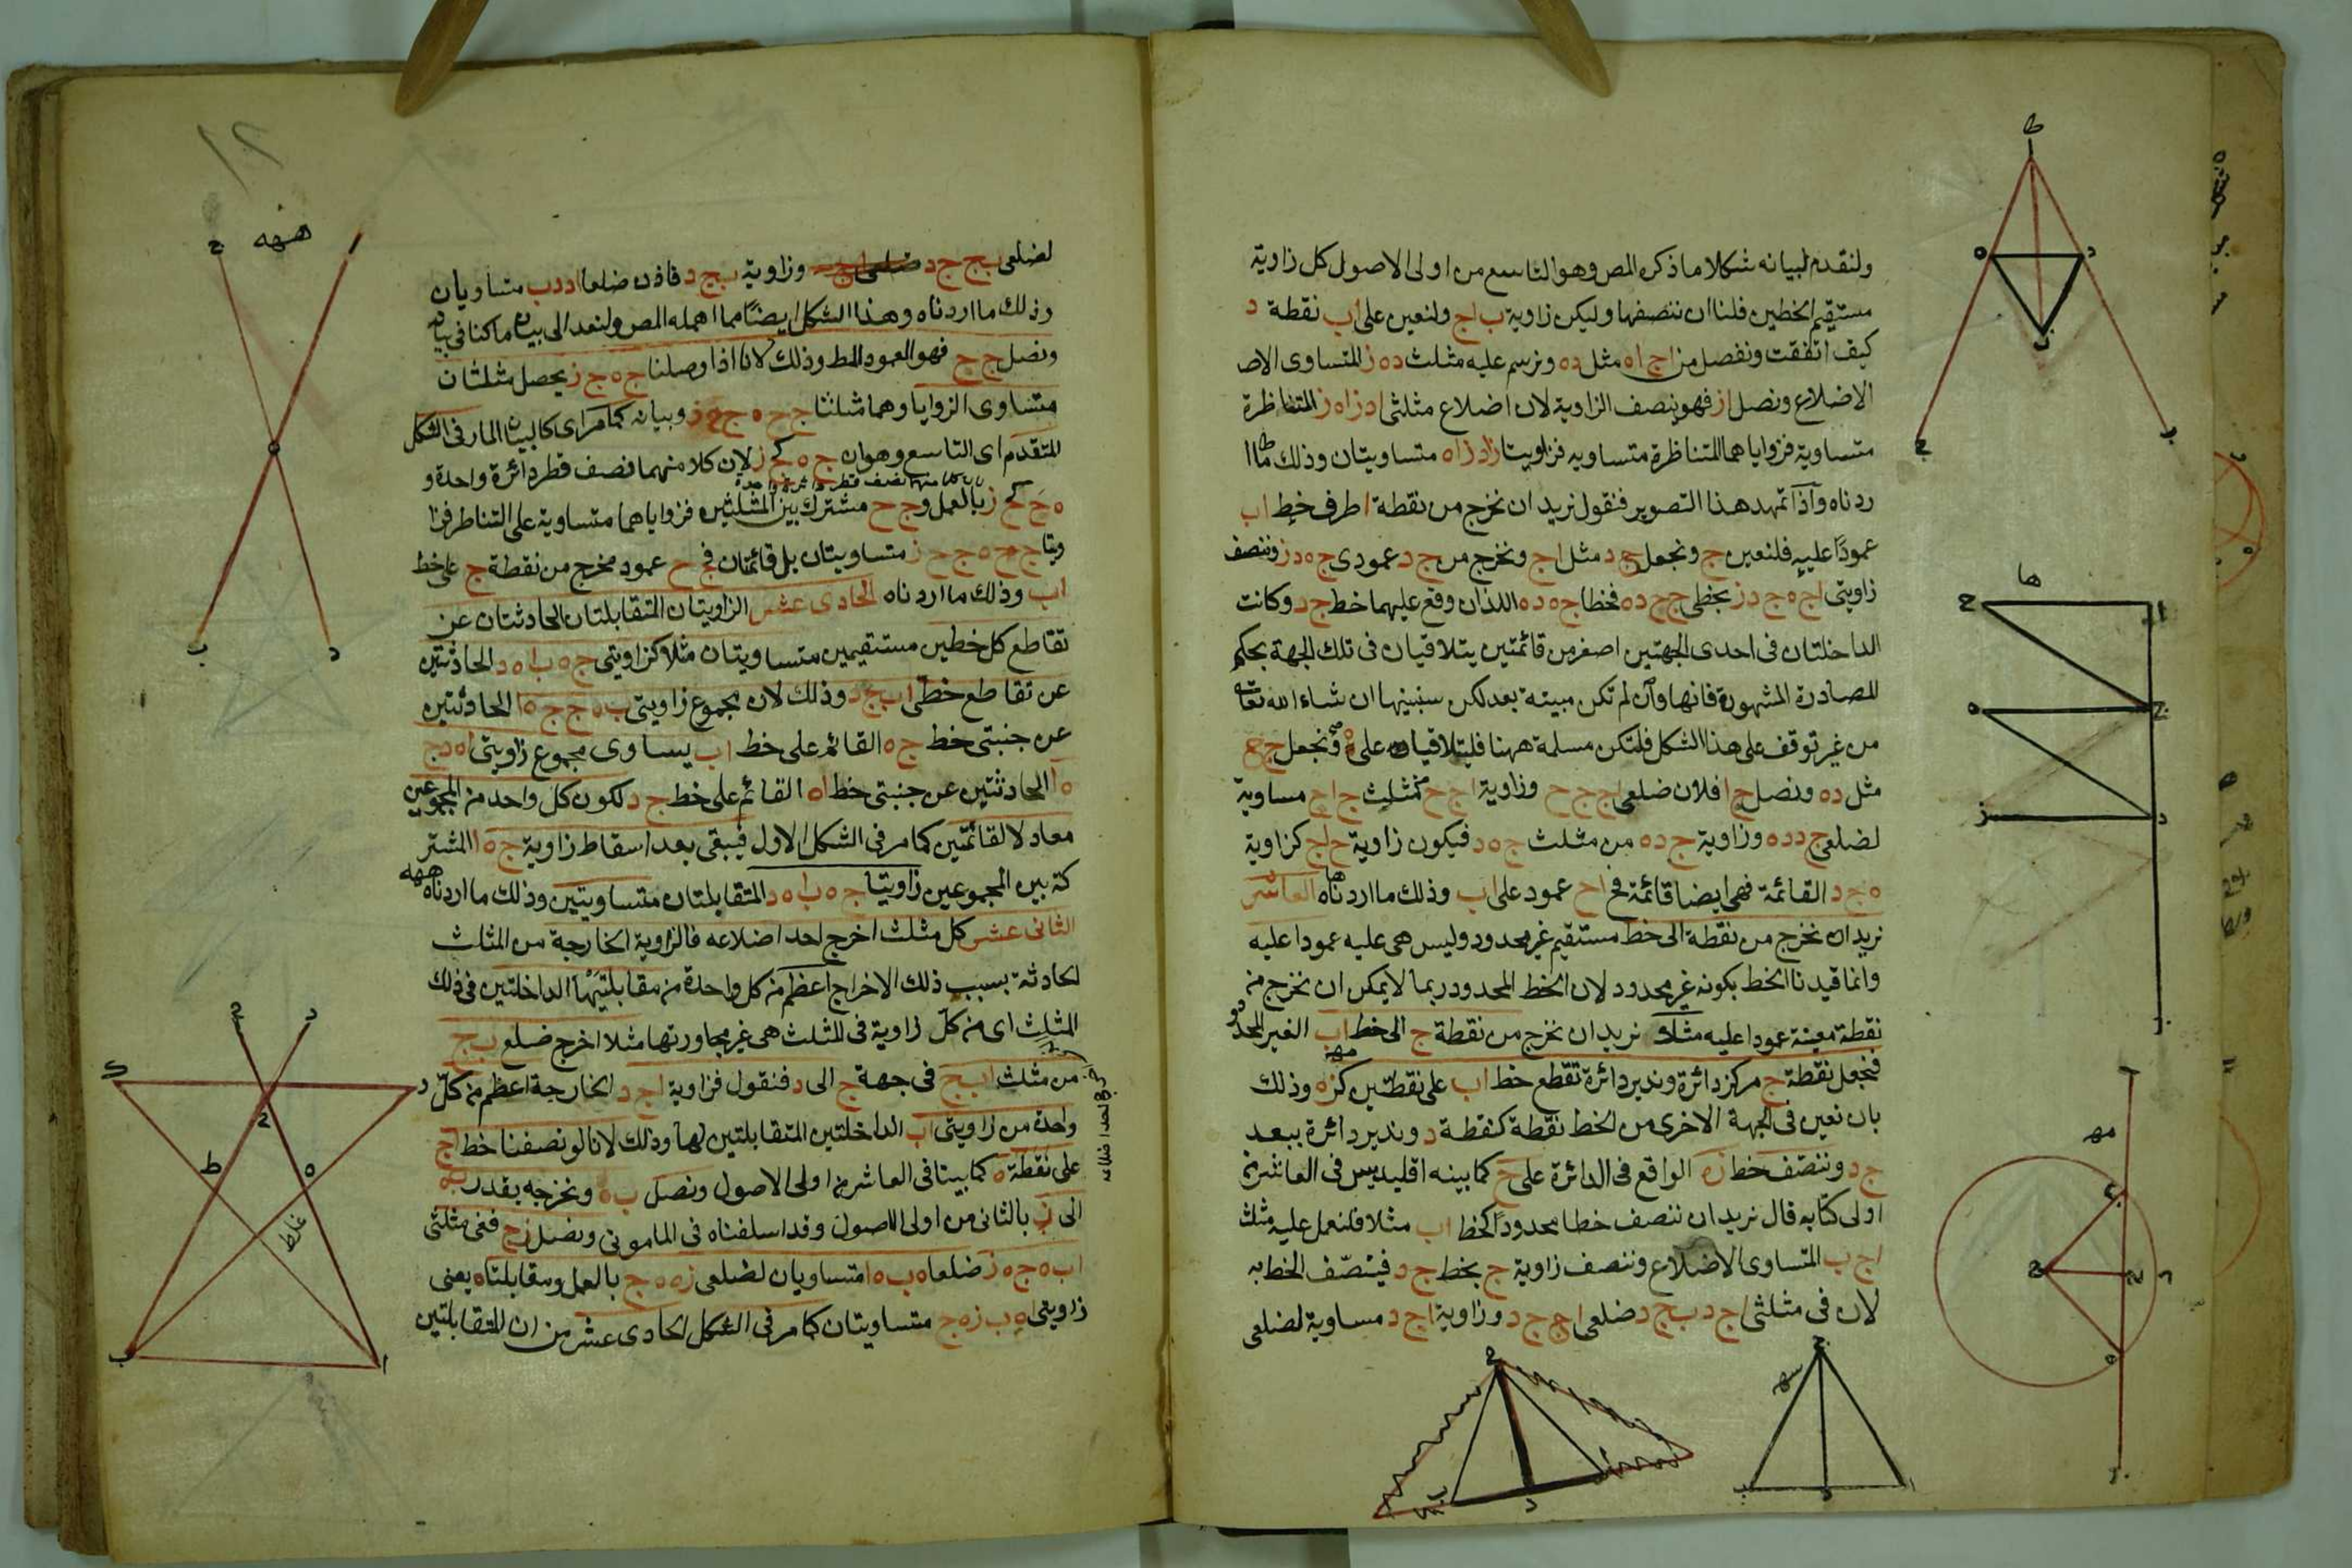 ولنقدم لبيانه شكلا ما ذكره المص وهو التاسع من اولى الاصول كل زاوية
مستقيم الخطين فلنا ان ننصفها وليكن زاوية ب ا ج ولنعين على ا ب نقطة د
كيف اتفقت ونفصل من ا ج ا ه مثل د ه ونرسم عليه مثلث د ه ز المتساوى الاض
الاضلاع ونصل ا ز فهو ينصف الزاوية لان اضلاع مثلثى ا د ز ا ه ز المتناظرة
متساوية فزواياهما المتناظرة متساويه فزاويتا ز ا د ز ا ه متساويتان وذلك ما ا
ردناه واذا تمهد هذا التصوير فنقول نريد ان نخرج من نقطة ا طرف خط ا ب
عمودًا عليه فلنعين ج ونجعل ج د مثل ا ج ونخرج من ج د عمودى ج ه د ز وننصف
زاويتى ا ج ه ج د ز بخطى ج ح د ه فخطا ج ه د ه اللذان وقع عليهما خط ج د وكانت
الداخلتان فى احدى الجهتين اصغر من قائمتين يتلاقيان فى تلك الجهة بحكم
المصادرة المشهورة فانها وان لم تكن مبينة بعد لكن سنبينها ان شاء الله تعالى
من غير توقف على هذا الشكل فلتكن مسلمة ههنا فليتلاقيا على ه ونجعل ج ح
مثل د ه ونصل ح ا فلان ضلعى ا ج ج ح وزاوية ا ج ح من مثلث ج ا ح مساوية
لضلعى ج د د ه وزاوية ج د ه من مثلث ج ه د فيكون زاوية ح ا ج كزاوية
ه ج د القائمة فهى ايضا قائمة فخ ا ح عمود على ا ب وذلك ما اردناه العاشر
نريد ان نخرج من نقطة الى خط مستقيم غير محدود وليس هى عليه عمودا عليه
وانما قيدنا الخط بكونه غير محدود لان الخط المحدود ربما لا يمكن ان نخرج من
نقطة معينة عمودا عليه مثلا نريد ان نخرج من نقطة ج الى خط ا ب الغير المحدود
فنجعل نقطة ج مركز دائرة وندير دائرة تقطع خط ا ب على نقطتين كز ه وذلك
بان نعين فى الجهة الاخرى من الخط نقطة كنقطة د وندير دائرة ببعد
ج د وننصف خط ز ه الواقع فى الدائرة على ح كما بينه اقليدس فى العاشر من
اولى كتابه قال نريد ان ننصف خطا محدودًا كخط ا ب مثلا فلنعمل عليه مثلث
ا ج ب المتساوى الاضلاع وننصف زاوية ج بخط ج د فينصف الخط به
لان فى مثلثى ا ج د ب ج د ضلعى ا ج ج د وزاوية ا ج د مساوية لضلعى
لضلعى ب ج ج د وزاوية ب ج د فاذن ضلعا ا د د ب متساويان
وذلك ما اردناه وهذا الشكل ايضًا مما اهمله المص ولنعد الى بيان ما كنا فى بيانه
ونصل ج ح فهو العمود المط وذلك لانا اذا وصلنا ج ه ج ز يحصل مثلثان
متساوى الزوايا وهما مثلثا ج ح ه ج ح ز وبيانه كما مر اى كالبيان المار فى الشكل
المتقدم اى التاسع وهو ان ج ه كج ز لان كلا منهما نصف قطر دائرة واحدة و
ه ح كح ز بالعمل وج ح مشترك بين المثلثين فزواياهما متساوية على التناظر فزا
ويتا ج ح ه ج ح ز متساويتان بل قائمتان فج ح عمود مخرج من نقطة ج على خط
ا ب وذلك ما اردناه الحادى عشر الزاويتان المتقابلتان الحادثتان عن
تقاطع كل خطين مستقيمين متساويتان مثلا كزاويتى ج ه ب ا ه د الحادثتين
عن تقاطع خطى ا ب ج د وذلك لان مجموع زاويتى ب ه ج ج ه ا الحادثتين
عن جنبتى خط ج ه القائم على خط ا ب يساوى مجموع زاويتى ا ه د ج
ه ا الحادثتين عن جنبتى خط ا ه القائم على خط ج د لكون كل واحد من المجموعين
معادلا لقائمتين كما مر فى الشكل الاول فيبقى بعد اسقاط زاوية ج ه ا المشتر
كة بين المجموعين زاويتا ج ه ب ا ه د المتقابلتان متساويتين وذلك ما اردناه
الثانى عشر كل مثلث اخرج احد اضلاعه فالزاوية الخارجة من المثلث
الحادثة بسبب ذلك الاخراج اعظم من كل واحدة من مقابلتيها الداخلتين فى ذلك
المثلث اى من كل زاوية فى المثلث هى غير مجاورتها مثلا اخرج ضلع ب ج
من مثلث ا ب ج فى جهة ج الى د فنقول فزاوية ا ج د الخارجة اعظم من كل
واحدة من زاويتى ا ب الداخلتين المتقابلتين لها وذلك لانا لو نصفنا خط ا ج
على نقطة ه كما بينا فى العاشر من اولى الاصول ونصل ب ه ونخرجه بقدر ب ه
الى ز بالثانى من اولى الاصول وقد اسلفناه فى المامونى ونصل ز ج ففى مثلثى
ا ب ه ج ه ز ضلعا ه ب ه ا متساويان لضلعى ز ه ه ج بالعمل ومقابلتاه يعنى
زاويتى ا ه ب ز ه ج متساويتان كما مر فى الشكل الحادى عشر من ان المتقابلتين
غلط
١٢